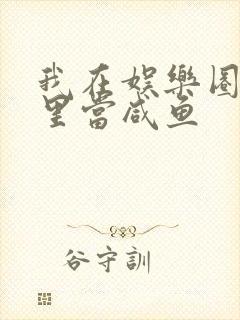 我在娱樂圈
里當咸鱼
谷守訓